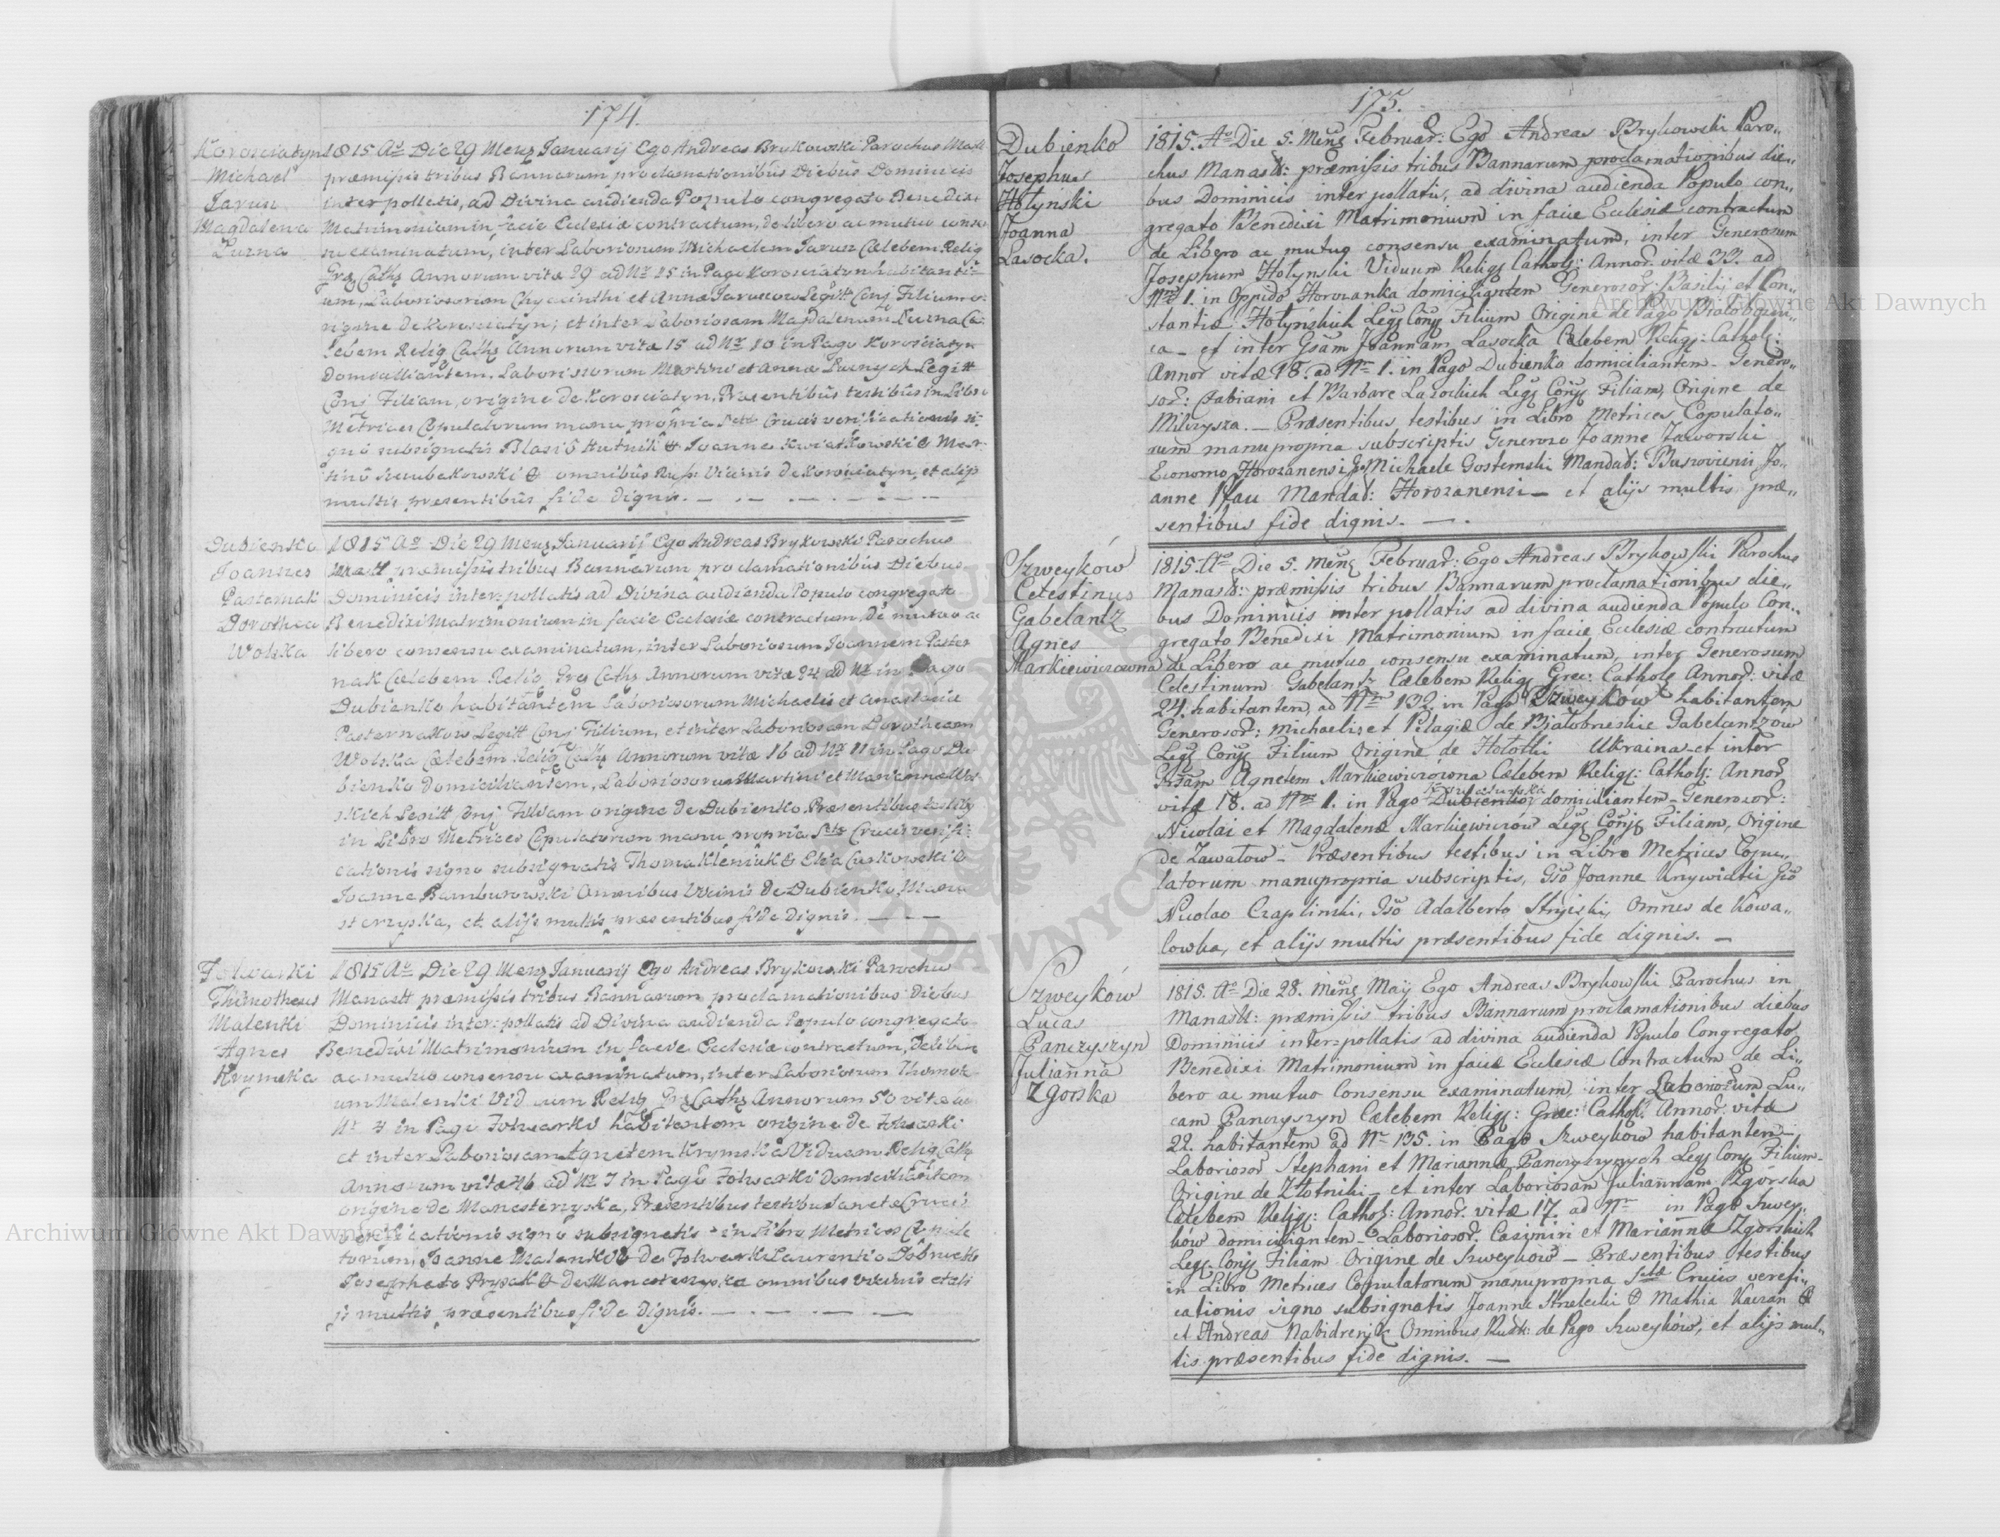 174.
Korosciatyn
Michael
Jarun
Magdalena
Lurna
1815 Ao Die 29 Menz Januarij Ego Andreas Brykowski Parochus Mast
præmissis tribus Bannarum proclamationibus Diebus Dominicis
inter pollatis, ad Divina audienda Populo congregato Benedixi
Matrimonium in facie Ecclesiæ contractum, de libero ac mutuo conse
su examinatum, inter Laboriosum Michaelem Jarun Cælebem Relig
Græ Cath Annorum vitæ 29 ad Nr 15 in Pago Korosciatyn habitanti
um, Laboriosorum Chyacinthi et Annæ Jarunow Legitt Conj Filium o
rigine de Korosciatyn; et inter Laboriosam Magdalenam Lurna Cæ
lebem Relig Cath Annorum vitæ 15 ad Nr 10 in Pago Korosciatyn
Domicilliantem, Laboriosorum Martini et Annæ Lurnych Legitt
Conj Filiam, origine de Korosciatyn. Præsentibus testibus in Libro
Metrices Copulatorum manu propria Sctæ Crucis verificationis si
gno subsignatis Blasio Hutnik et Joanne Kwiatkowski et Mar
tino omnibus Vicinis de Korosciatyn, et alijs
multis præsentibus fide dignis.
Dubienko
Joannes
Pasternak
Dorothea
Wolska
1815 Ao Die 29 Menz Januarij Ego Andreas Brykowski Parochus
Mast præmissis tribus Bannarum proclamationibus Diebus
Dominicis inter pollatis ad Divina audienda Populo congregato
Benedixi Matrimonium in facie Ecclesiæ contractum, de mutuo ac
libero consensu examinatum, inter Laboriosum Joannem Paster
nak Cælebem Relig Græ Cath Annorum vitæ 24 ad Nr in Pago
Dubienko habitantem Laboriosorum Michaelis et Anastasiæ
Pasternakow Legitt Conj Filium, et inter Laboriosam Dorotheam
Wolska Cælebem Relig Cath Annorum vitæ 16 ad Nr 11 in Pago Du
bienko domiciliantem, Laboriosorum Martini et Mariannæ Wol
skich Legitt Conj Filiam origine de Dubienko. Præsentibus testibus
in Libro Metrices Copulatorum manu propria Sctæ Crucis verifi
cationis signo subsignatis Thoma Kleniuk et Elia Curkowski et
Joanne Bamburowski Omnibus Vicinis de Dubienko, Mana
sterzyska, et alijs multis præsentibus fide dignis.
Folwarki
Thimotheus
Malenki
Agnes
Krymska
1815 Ao Die 29 Menz Januarij Ego Andreas Brykowski Parochus
Manast præmissis tribus Bannarum proclamationibus Diebus
Dominicis inter pollatis ad Divina audienda Populo congregato
Benedixi Matrimonium in facie Ecclesiæ contractum, de libe
ac mutuo consensu examinatum, inter Laboriosum Thimote
um Malenki Viduum Relig Græ Cath Annorum 50 vitæ ad
Nr 7 in Pago Folwarki habitantem origine de Folwarki
et inter Laboriosam Agnetem Krymska Viduam Relig Cath
Annorum vitæ 46 ad Nr 7 in Pago Folwarki Domiciliantem
origine de Manasterzyska, Præsentibus testibus Sanctæ Crucis
verificationis signo subsignatis in Libro Metrices Copula
torum, Joanne Malenki et de Folwarki Laurentio
Josepho Prysak et de Manasterzyska omnibus vicinis et ali
js multis præsentibus fide dignis.
175.
Dubienko
Josephus
Hołynski
Joanna
Lasocka.
1815. Ao Die 5. Menz Februar: Ego Andreas Brykowski Paro-
chus Manast: præmissis tribus Bannarum proclamationibus die-
bus Dominicis inter pollatis, ad divina audienda Populo con-
gregato Benedixi Matrimonium in facie Eclesiæ contractum
de Libero ac mutuo consensu examinatum, inter Generosum
Josephum Hołynski Viduum Relig Cathol: Annor: vitæ 33. ad
Nr 1. in Oppido Horozanka domiciliantem Generosor: Basilij et Con-
stantiæ Hołyńskich Leg Conj Filium Origine de Pago Białobozni-
ca – et inter Gsam Joannam Lasocka Cælebem Relig: Cathol:
Annor vitæ 18. ad Nr 1. in Pago Dubienko domiciliantem – Genero-
sor: Fabiani et Barbare Lasockich Leg Conj Filiam, Origine de
Milczysza. – Præsentibus testibus in Libro Metrices Copulato-
rum manupropria subscriptis Generoso Joanne Jaworski
Economo Horozanensi, Gso Michaele Gostemski Mandat: Jo-
anne Pfau Mandat: Horozanensi – et alijs multis præ-
sentibus fide dignis. – .
Szweyków
Celestinus
Gabelantz
Agnes
Markiewiczowna
1815. Ao Die 5. Menz Februar: Ego Andreas Brykowski Parochus
Manast: præmissis tribus Bannarum proclamationibus die-
bus Dominicis inter pollatis ad divina audienda Populo Con-
gregato Benedixi Matrimonium in facie Ecclesiæ contractum
de Libero ac mutuo consensu examinatum, inter Generosum
Celestinum Gabelantz Cælebem Relig Grec: Cathol Annor: vitæ
24. habitantem, ad Nr 132. in Pago Szweyków habitantem
Generosor: Michaelis et Pelagiæ de Białobrzeskie Gabelantzow
Leg Conj Filium Origine de Hołotki Ukraina – et inter
Gsam Agnetem Markiewiczówna Cælebem Relig: Cathol: Annor
vitæ 18. ad Nr 1. in Pago Dubienko domiciliantem – Generosor:
Nicolai et Magdalenæ Markiewiczów Leg Conj Filiam, Origine
de Zawałow – Præsentibus testibus in Libro Metrices Copu-
latorum manupropria subscriptis, Gso Joanne Krywicki Gso
Nicolao Czaplinski, Gso Adalberto Stryiski, Omnes de Kowa-
lowka, et alijs multis præsentibus fide dignis. –
Szweyków
Lucas
Panczyszyn
Julianna
Zgorska
1815. Ao Die 28. Menz Maij Ego Andreas Brykowski Parochus in
Manast: præmissis tribus Bannarum proclamationibus diebus
Dominicis inter=pollatis ad divina audienda Populo Congregato
Benedixi Matrimonium in facie Ecclesiæ Contractum de Li-
bero ac mutuo Consensu examinatum, inter Laboriosum Lu-
cam Panczyszyn Cælebem Relig: Græc: Cathol: Annor: vitæ
22. habitantem ad Nr 135. in Pago Szweyków habitantem
Laboriosor Stephani et Mariannæ Panczyszynych Leg Conj Filium –
Origine de Złotniki – et inter Laboriosam Juliannam Zgórska
Cælebem Relig: Cathol: Annor: vitæ 17. ad Nr in Pago Szwey-
ków domiciliantem – Laboriosor. Casimiri et Mariannæ Zgorskich
Leg: Conj Filiam Origine de Szweyków – Præsentibus testibus
in Libro Metrices Copulatorum manupropria Sctæ Crucis verefi-
cationis signo subsignatis Joanne Strzelecki et Mathia Kaczan et
et Andreas Nabidrenjk Omnibus Rustt: de Pago Szweyków, et alijs mul-
tis præsentibus fide dignis. –
Archiwum Główne Akt Dawnych
Archiwum Główne Akt Dawnych